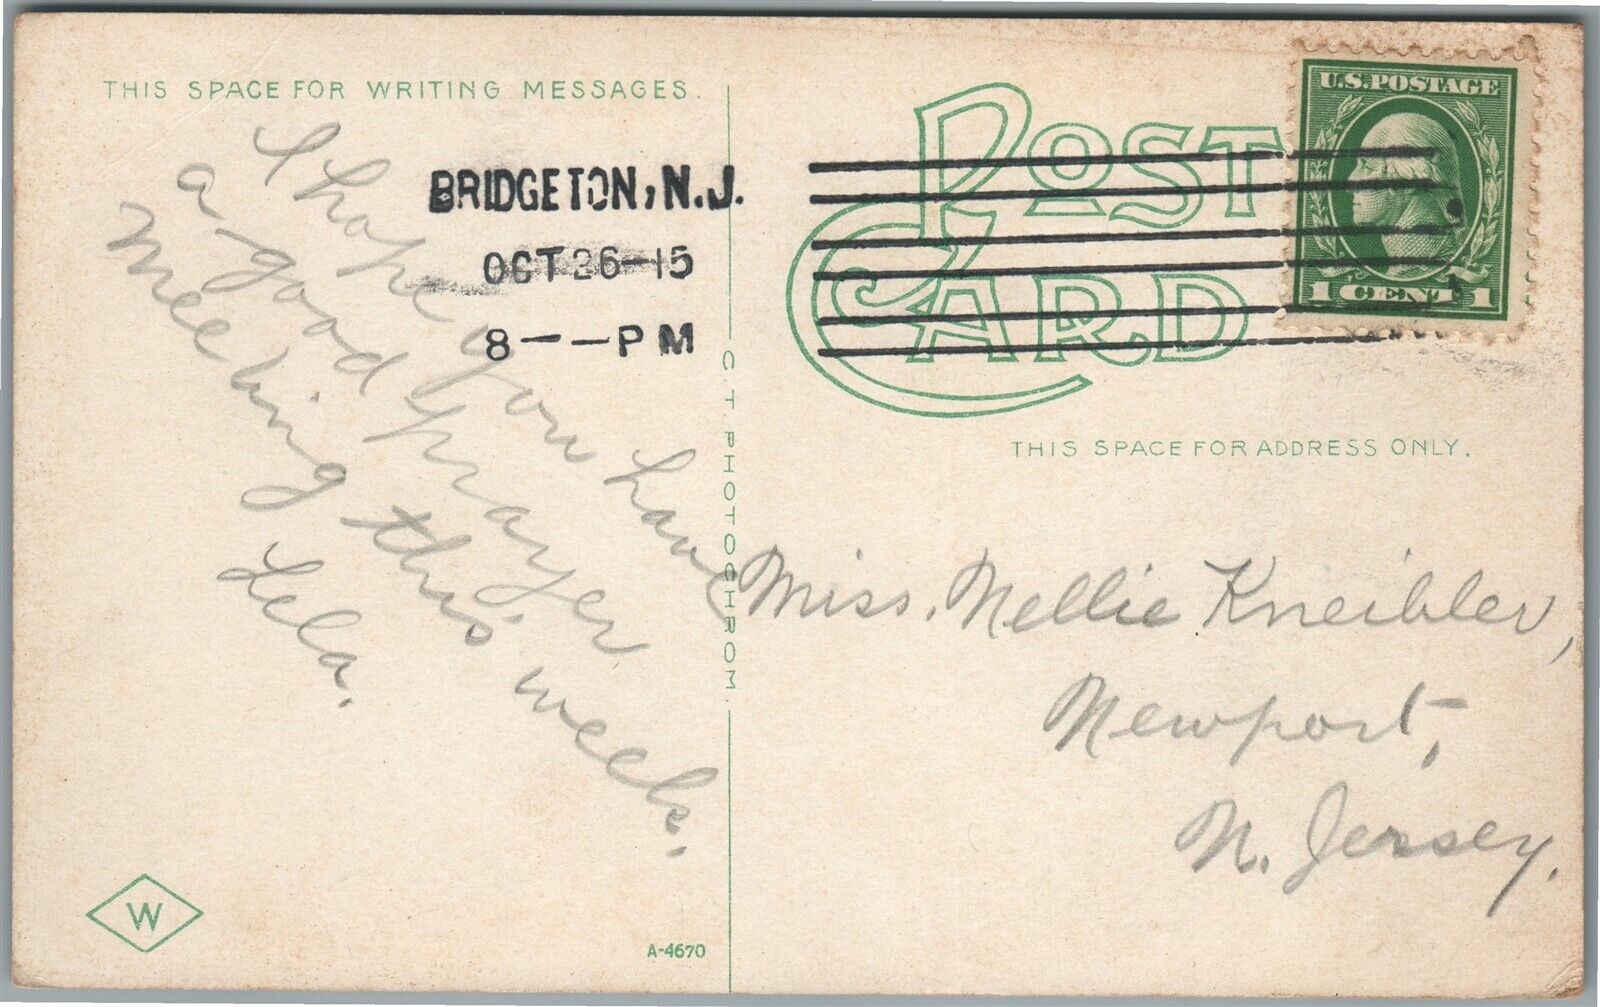 THIS SPACE FOR WRITING MESSAGES.
I hope you have
a good prayer
meeting this week.
Lela.
BRIDGETON, N.J.
OCT 26-15
8--PM
POST
CARD
U.S. POSTAGE
1 CENT 1
THIS SPACE FOR ADDRESS ONLY.
Miss. Nellie Kneibler,
Newport,
N. Jersey.
C. T. PHOTOCHROM.
W
A-4670